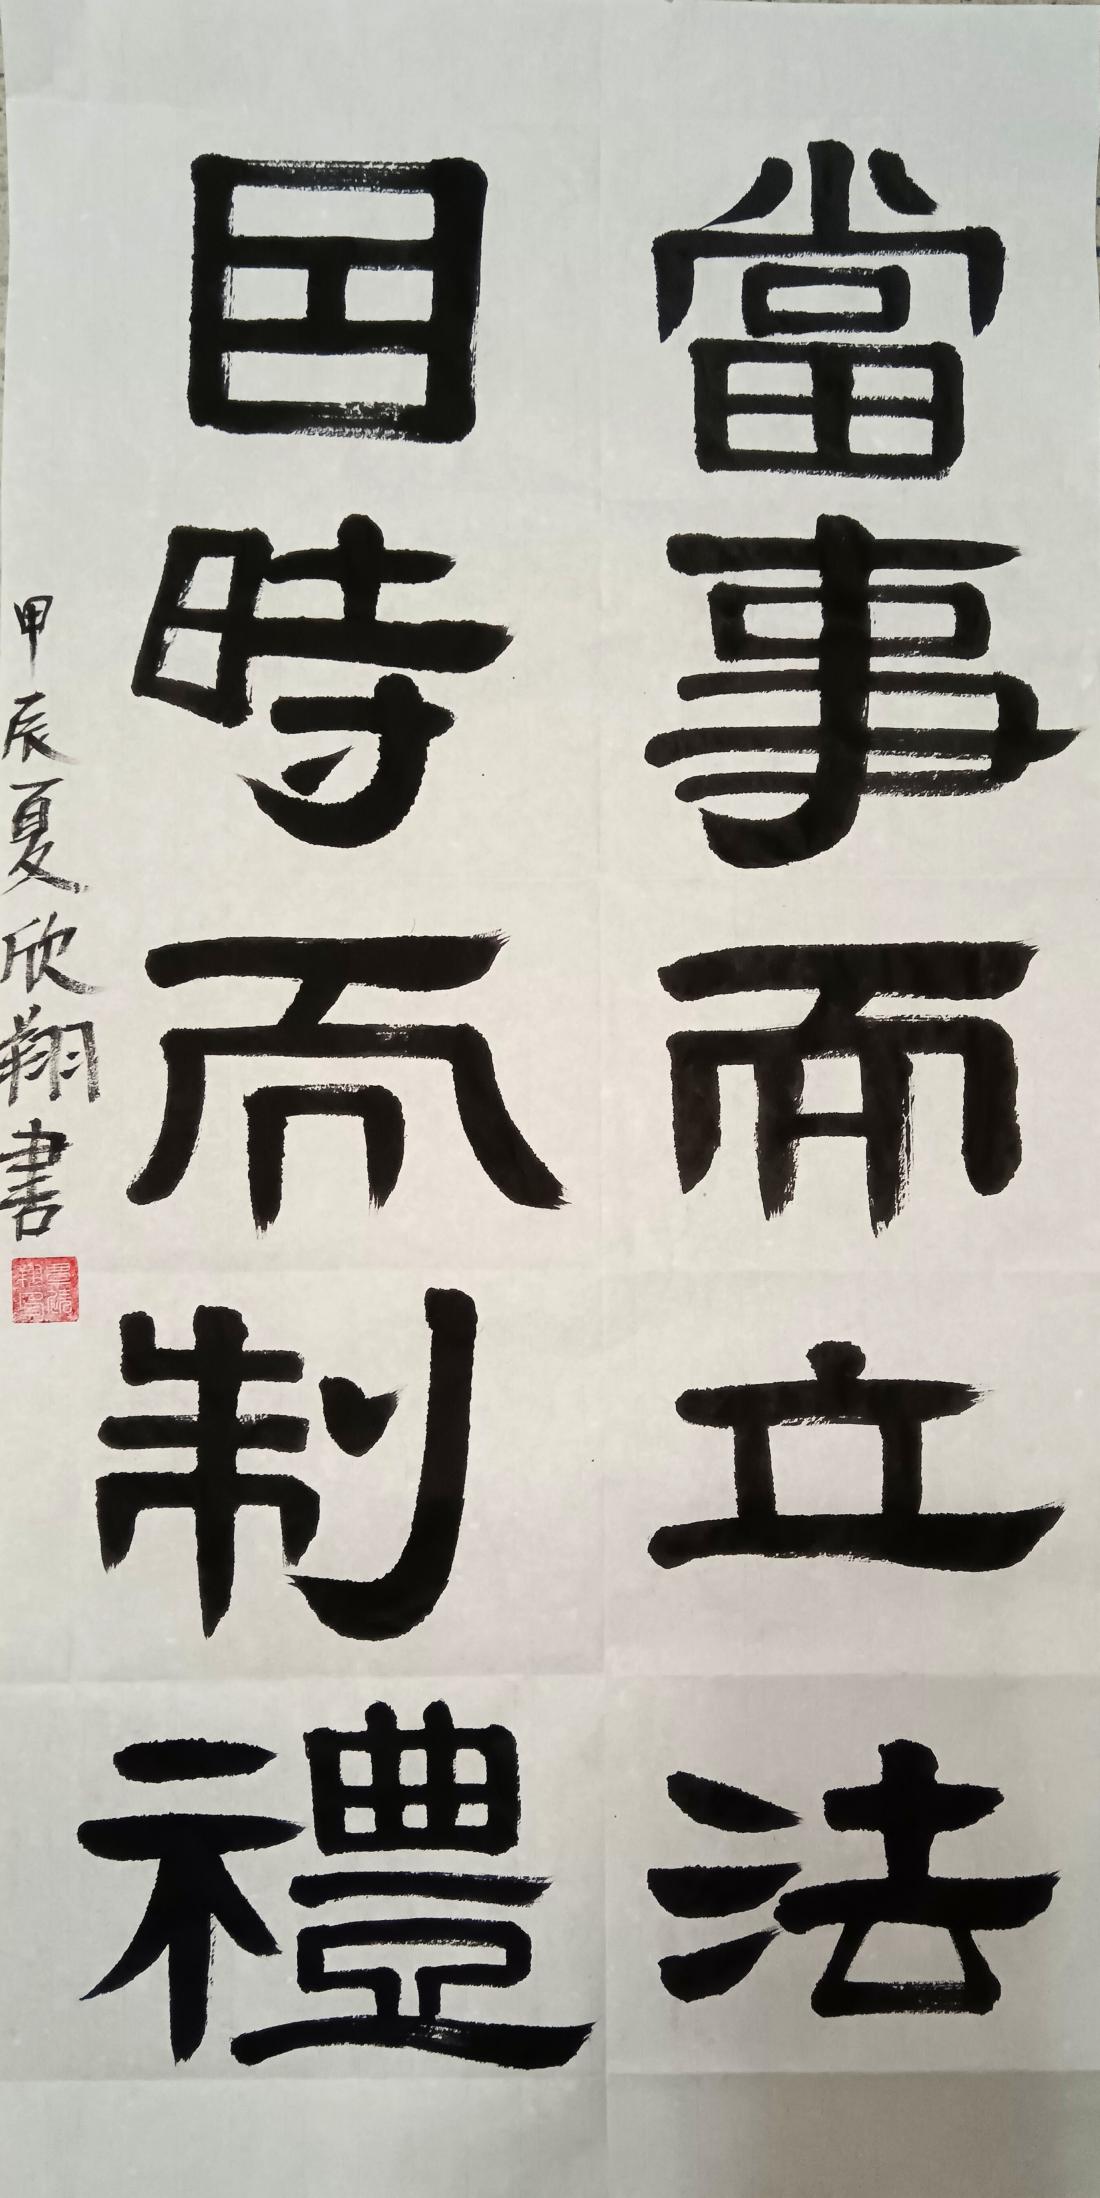 當事而立法
因時而制禮
甲辰夏欣翔書